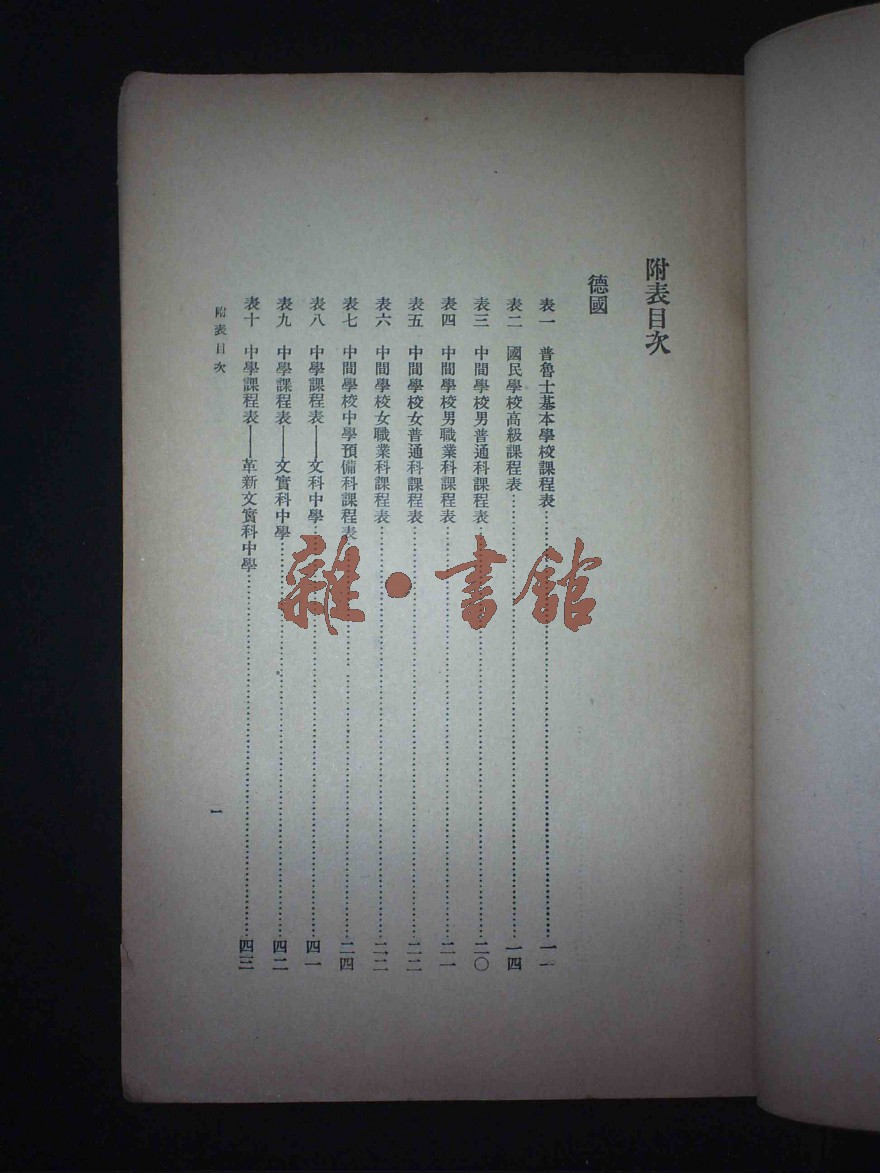 附表目次
德國
表一 普魯士基本學校課程表……一一
表二 國民學校高級課程表……一四
表三 中間學校男普通科課程表……二〇
表四 中間學校男職業科課程表……二一
表五 中間學校女普通科課程表……二二
表六 中間學校女職業科課程表……二二
表七 中間學校中學預備科課程表……二四
表八 中學課程表——文科中學……四一
表九 中學課程表——文實科中學……四二
表十 中學課程表——革新文實科中學……四三
附表目次
一
雜·書館